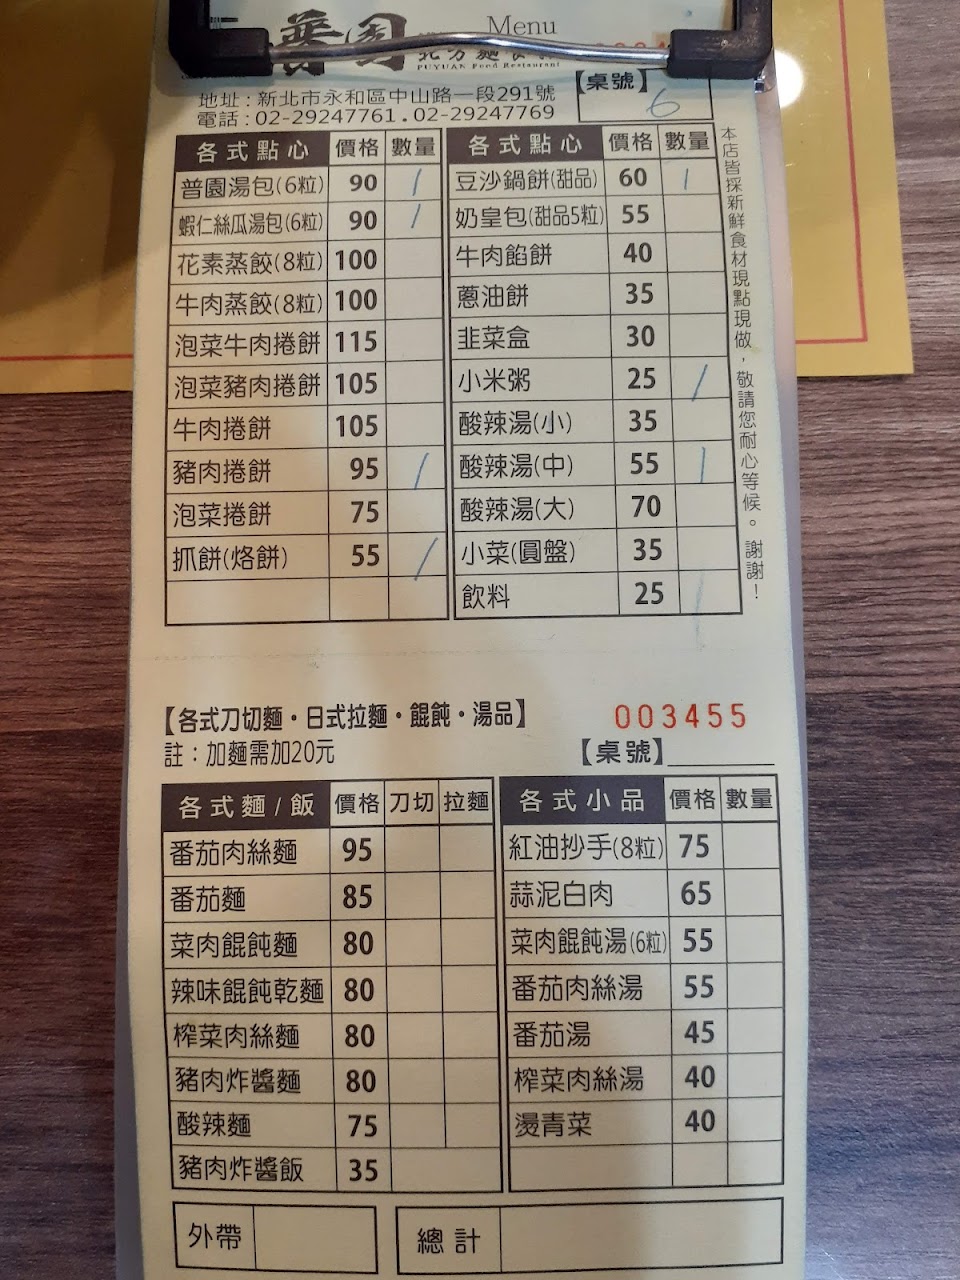 普園 Menu
北方麵食
PUYUAN Food Restaurant
地址：新北市永和區中山路一段291號
電話：02-29247761．02-29247769
【桌號】 6
各式點心 價格 數量
普園湯包(6粒) 90 /
蝦仁絲瓜湯包(6粒) 90 /
花素蒸餃(8粒) 100
牛肉蒸餃(8粒) 100
泡菜牛肉捲餅 115
泡菜豬肉捲餅 105
牛肉捲餅 105
豬肉捲餅 95 /
泡菜捲餅 75
抓餅(烙餅) 55 /
各式點心 價格 數量
豆沙鍋餅(甜品) 60 /
奶皇包(甜品5粒) 55
牛肉餡餅 40
蔥油餅 35
韭菜盒 30
小米粥 25 /
酸辣湯(小) 35
酸辣湯(中) 55 /
酸辣湯(大) 70
小菜(圓盤) 35
飲料 25 /
本店皆採新鮮食材現點現做，敬請您耐心等候。謝謝！
【各式刀切麵・日式拉麵・餛飩・湯品】
003455
註：加麵需加20元
【桌號】
各式麵/飯 價格 刀切 拉麵
番茄肉絲麵 95
番茄麵 85
菜肉餛飩麵 80
辣味餛飩乾麵 80
榨菜肉絲麵 80
豬肉炸醬麵 80
酸辣麵 75
豬肉炸醬飯 35
各式小品 價格 數量
紅油抄手(8粒) 75
蒜泥白肉 65
菜肉餛飩湯(6粒) 55
番茄肉絲湯 55
番茄湯 45
榨菜肉絲湯 40
燙青菜 40
外帶
總計